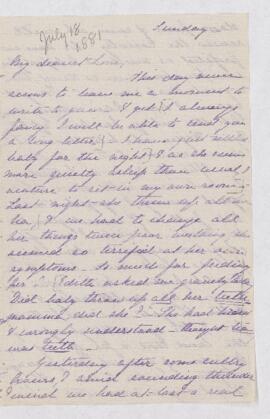 July 18
1881
Sunday
My dearest Love,
This day never
seems to leave me a moment to
write to you & yet I always
fancy I will be able to send you
a long letter. I have just
baby for the night & as she seems
more quietly asleep than usual I
venture to sit in my own room.
Last night she threw up all
her & we had to change all
her things twice poor
seemed so terrified at her own
symptoms. So much for
her. Edith asked me gravely
Did baby throw up all her teeth
Mamma, did she? She had
& wrongly understood - thought tea
was teeth.
Yesterday after some sultry
hours, & amid sounding thunder
we had at last a real